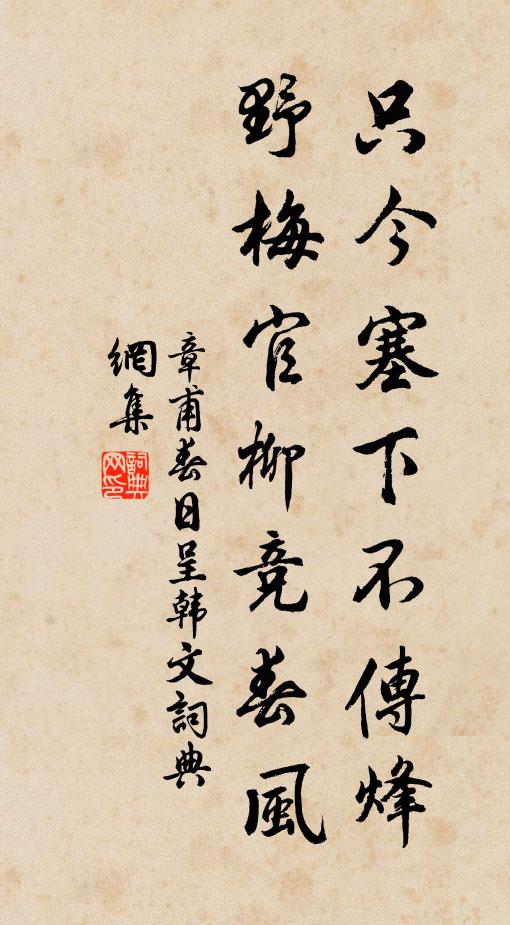 只今塞下不傳烽
野梅官柳竞春風
章甫春日呈韩文詞典
網集
詞典網印